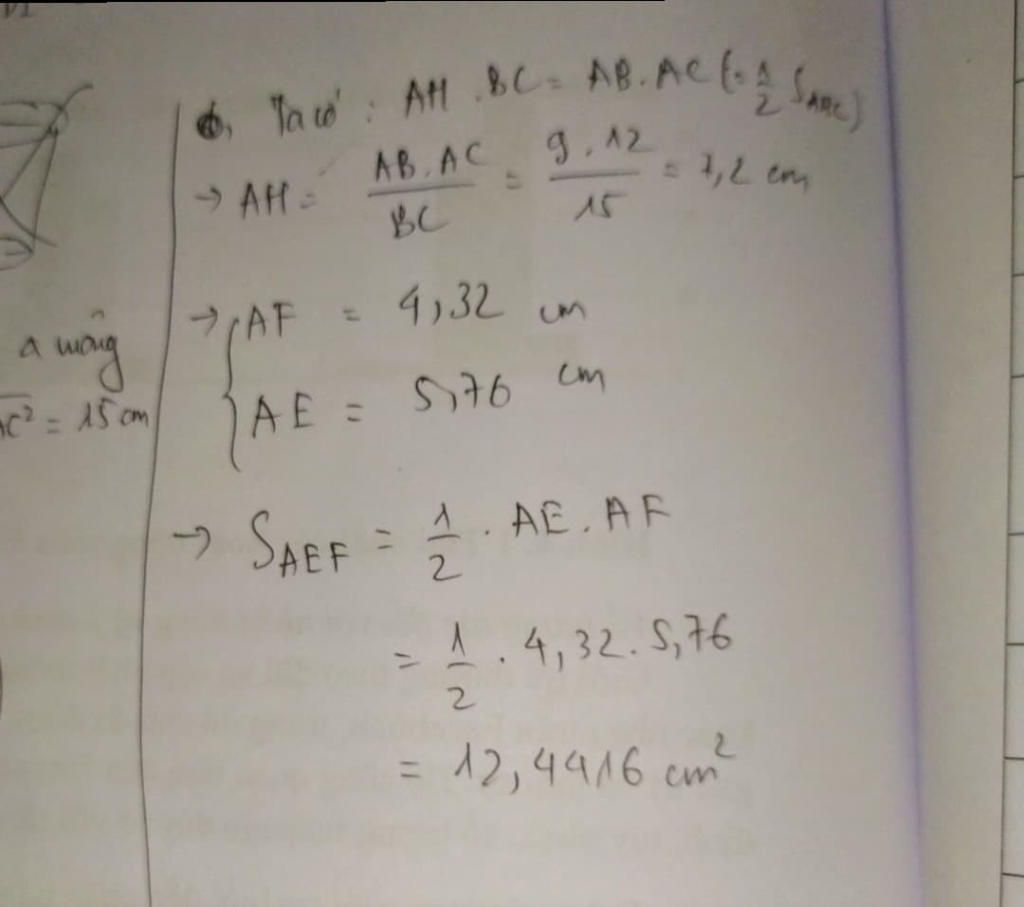 a uông
AC² = 15 cm
b, Ta có : AH . BC = AB . AC (= 1/2 S_ABC)
→ AH = AB . AC / BC = 9 . 12 / 15 = 7,2 cm
→ { AF = 4,32 cm
AE = 5,76 cm
→ S_AEF = 1/2 . AE . AF
= 1/2 . 4,32 . 5,76
= 12,4416 cm²